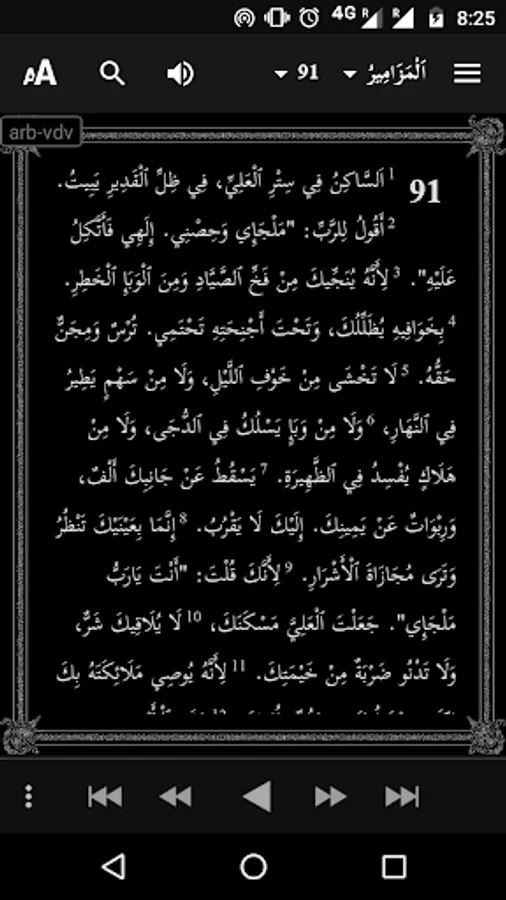 4G R R 8:25
AA اَلْمَزَامِيرُ 91
arb-vdv
91 1 اَلسَّاكِنُ فِي سِتْرِ ٱلْعَلِيِّ، فِي ظِلِّ ٱلْقَدِيرِ يَبِيتُ.
2 أَقُولُ لِلرَّبِّ: "مَلْجَإِي وَحِصْنِي. إِلَهِي فَأَتَّكِلُ
عَلَيْهِ". 3 لِأَنَّهُ يُنَجِّيكَ مِنْ فَخِّ ٱلصَّيَّادِ وَمِنَ ٱلْوَبَإِ ٱلْخَطِرِ.
4 بِخَوَافِيهِ يُظَلِّلُكَ، وَتَحْتَ أَجْنِحَتِهِ تَحْتَمِي. تُرْسٌ وَمِجَنٌّ
حَقُّهُ. 5 لَا تَخْشَى مِنْ خَوْفِ ٱللَّيْلِ، وَلَا مِنْ سَهْمٍ يَطِيرُ
فِي ٱلنَّهَارِ، 6 وَلَا مِنْ وَبَإٍ يَسْلُكُ فِي ٱلدُّجَى، وَلَا مِنْ
هَلَاكٍ يُفْسِدُ فِي ٱلظَّهِيرَةِ. 7 يَسْقُطُ عَنْ جَانِبِكَ أَلْفٌ،
وَرِبْوَاتٌ عَنْ يَمِينِكَ. إِلَيْكَ لَا يَقْرُبُ. 8 إِنَّمَا بِعَيْنَيْكَ تَنْظُرُ
وَتَرَى مُجَازَاةَ ٱلْأَشْرَارِ. 9 لِأَنَّكَ قُلْتَ: "أَنْتَ يَارَبُّ
مَلْجَإِي". جَعَلْتَ ٱلْعَلِيَّ مَسْكَنَكَ، 10 لَا يُلَاقِيكَ شَرٌّ،
وَلَا تَدْنُو ضَرْبَةٌ مِنْ خَيْمَتِكَ. 11 لِأَنَّهُ يُوصِي مَلَائِكَتَهُ بِكَ